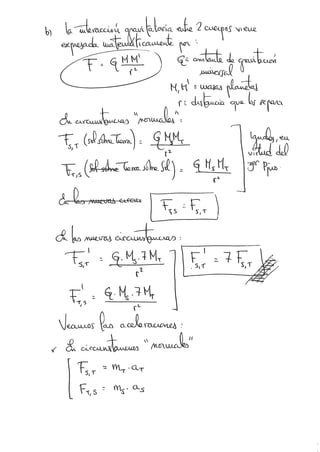 b) la interacción gravitatoria entre 2 cuerpos viene
expresada matemáticamente por :
F = G MM' / r²
G = constante de gravitación
universal
M, M' = masas planetas
r : distancia que los separa
En circunstancias "normales" :
F_S,T (sol sobre Tierra) = G M_S M_T / r²
F_T,S (Sol sobre Tierra sobre Sol) = G M_S M_T / r²
Iguales, en
virtud del
3er Ppio.
En las nuevas circuns
F_T,S = F_S,T
En las nuevas circunstancias :
F'_S,T = G. M_S. 7M_T / r²
F'_T,S = G. M_S. 7M_T / r²
F'_S,T = 7 F_S,T
Veamos las aceleraciones :
En circunstancias "normales"
F_S,T = m_T . a_T
F_T,S = m_S . a_S